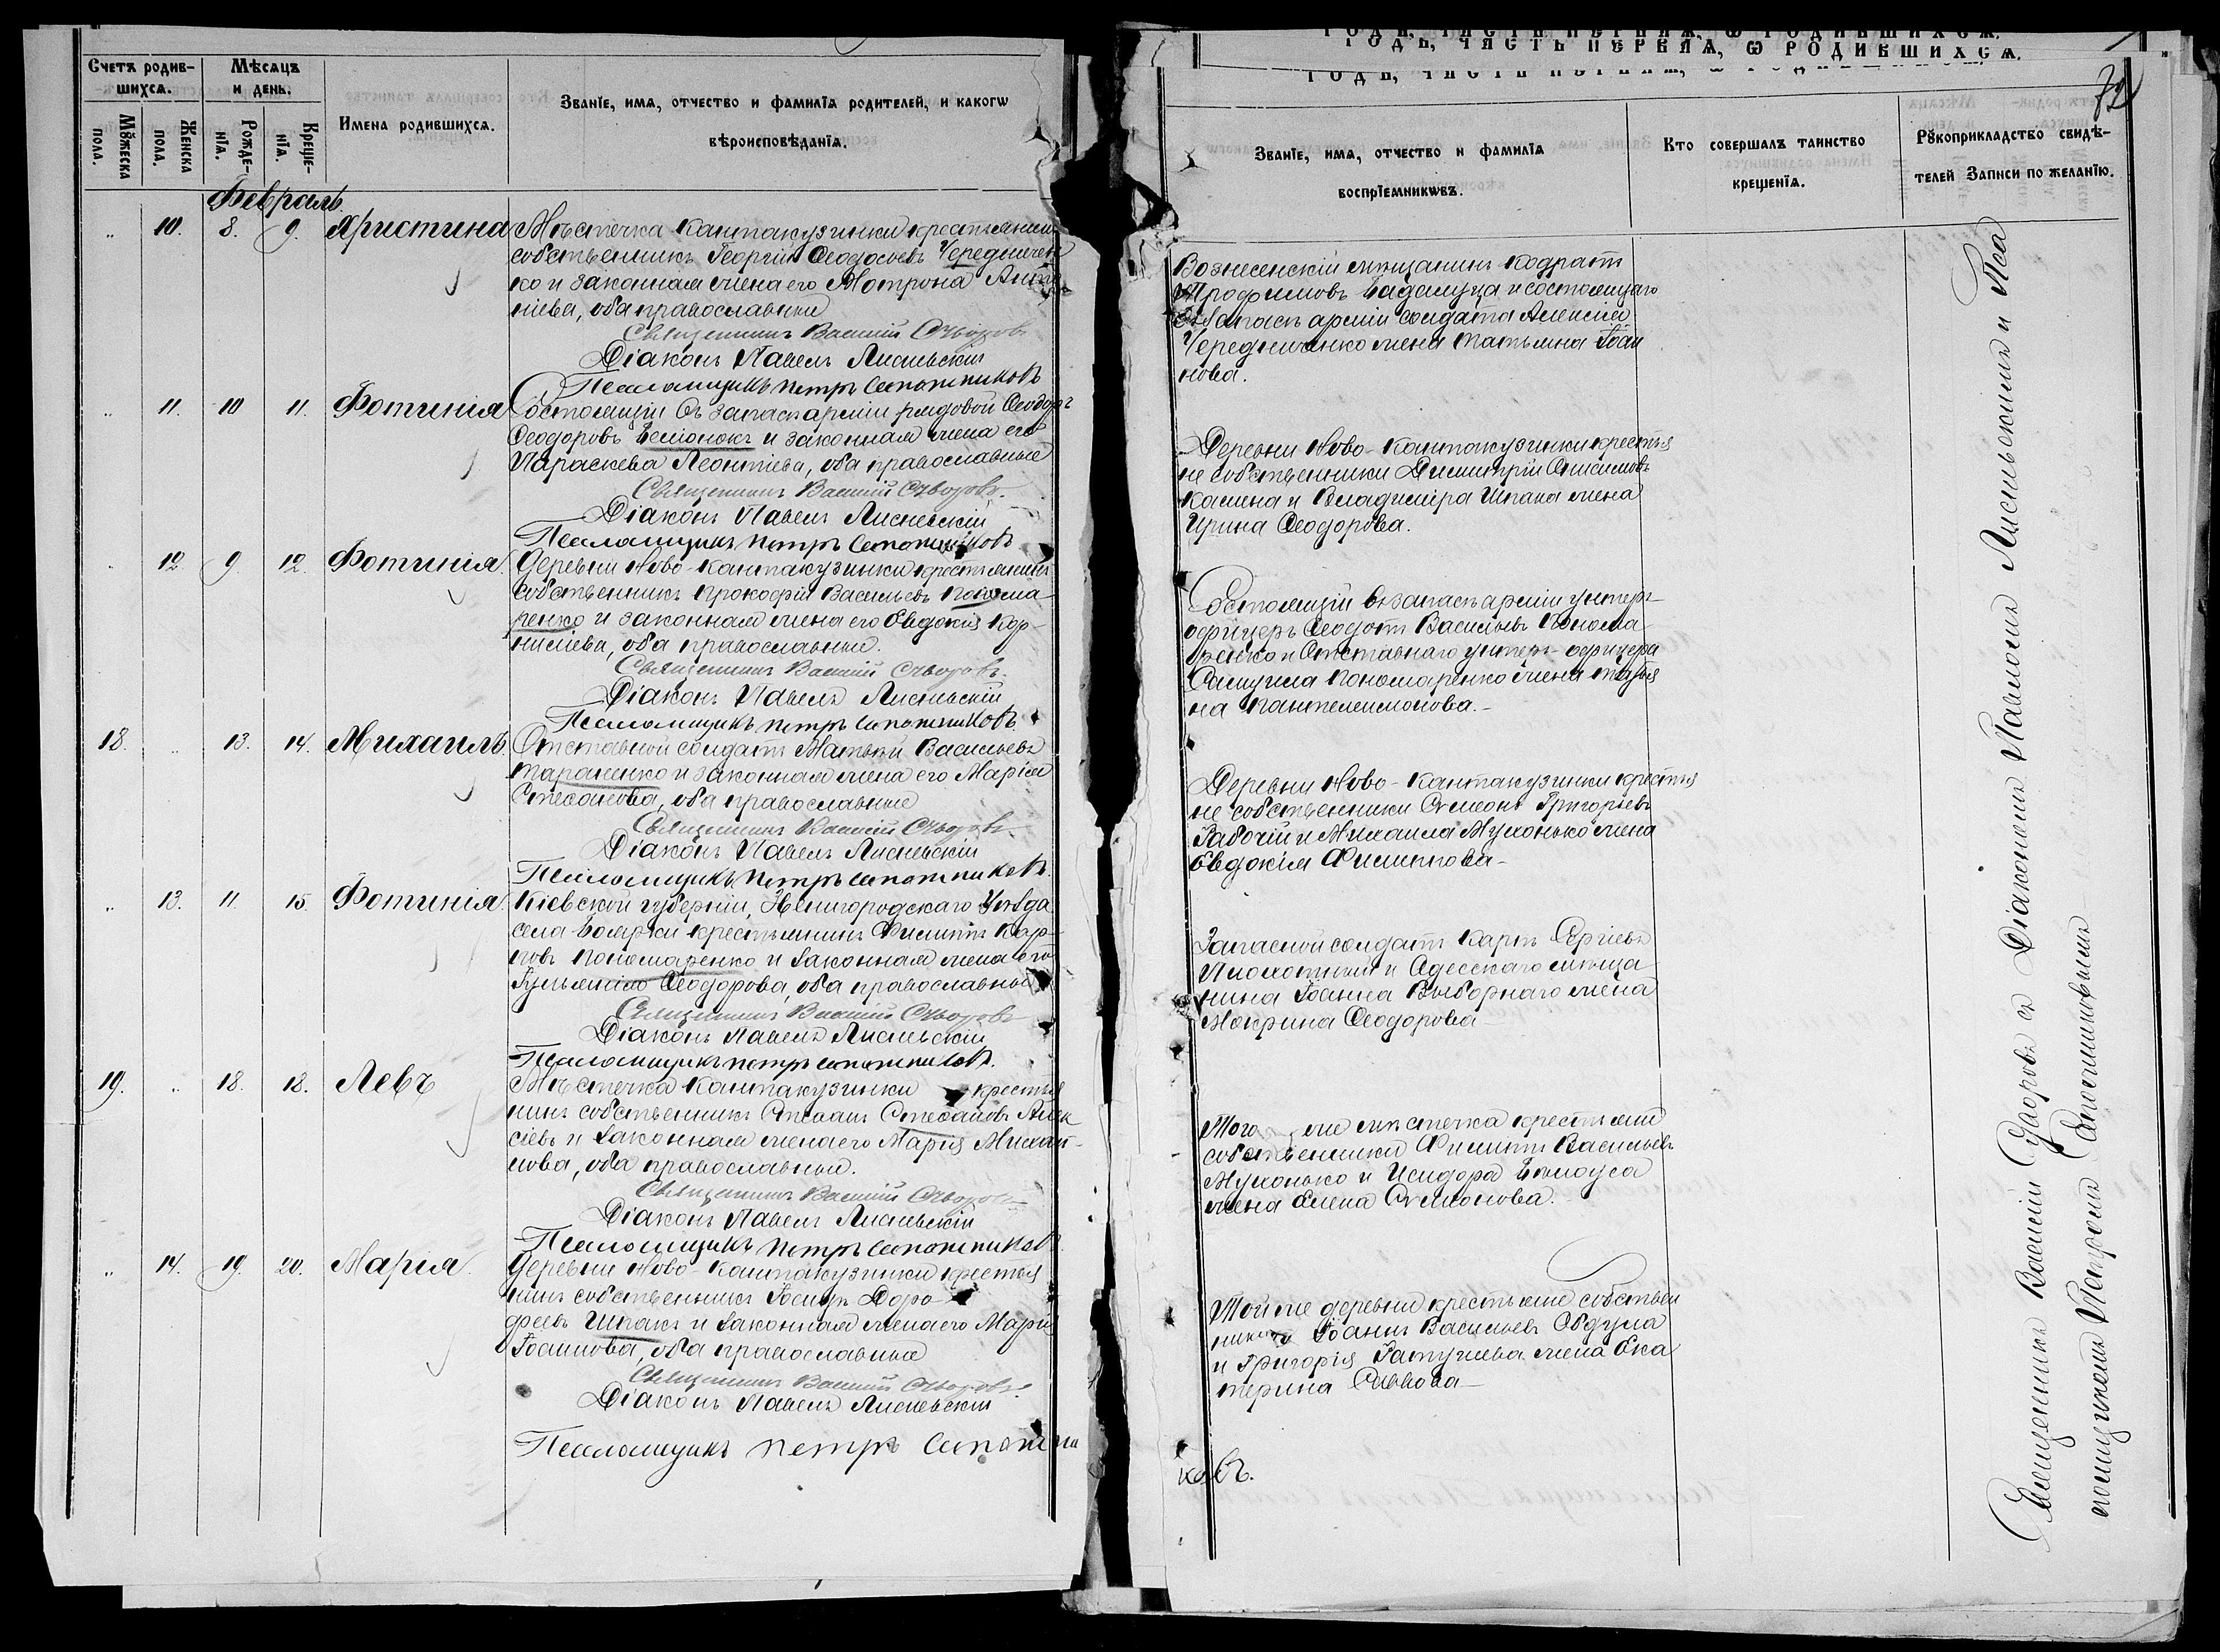 Счетъ родив-
шихся.
Мѣсяцъ
и день.
Мꙋжеска
пола.
Женска
пола.
Рожде-
нїя.
Креще-
нїя.
Имена родившихся.
Званїе, имя, отчество и фамилїя родителей, и какогѡ
вѣроисповѣданїя.
Февраль
„ 10. 8. 9. Христина Мѣстечка Кантакузинки крестьянинъ
собственникъ Георгій Ѳеодосьевъ Чередничен
ко и законная жена его Мотрона Анто
ніева, оба православные
Священникъ Василій
Діаконъ Павелъ Лисневскій
Псаломщикъ Петръ Сапожниковъ
„ 11. 10 11. Фотинія Состоящій въ запасѣ арміи рядовой Ѳеодоръ
Ѳеодоровъ и законная жена его
Параскева Леонтіева, оба православные
Священникъ Василій
Діаконъ Павелъ Лисневскій
Псаломщикъ Петръ Сапожниковъ
„ 12 9. 12. Фотинія. Деревни Ново-Кантакузинки крестьянинъ
собственникъ Прокофій Васильевъ Понома
ренко и законная жена его Евдокія Кор-
ниліева, оба православные.
Священникъ Василій
Діаконъ Павелъ Лисневскій
Псаломщикъ Петръ Сапожниковъ.
18. „ 13. 14. Михаилъ. Отставной солдатъ Матвѣй Васильевъ
Тараненко и законная жена его Марія
Стефанова, оба православные
Священникъ Василій
Діаконъ Павелъ Лисневскій
Псаломщикъ Петръ Сапожниковъ.
„ 13. 11. 15. Фотинія. Кіевской губерніи, Звенигородскаго Уѣзда
села Боярки крестьянинъ Филиппъ Кар-
повъ Пономаренко и законная жена его
Іуліанія Ѳеодорова, оба православные
Священникъ Василій
Діаконъ Павелъ Лисневскій
Псаломщикъ Петръ Сапожниковъ.
19. „ 18. 18. Левъ Мѣстечка Кантакузинки крестья
нинъ собственникъ Стефанъ Стефановъ Алек
сѣевъ и законная жена его Марія Михай-
лова, оба православные.
Священникъ Василій
Діаконъ Павелъ Лисневскій
Псаломщикъ Петръ Сапожниковъ
„ 14. 19. 20. Марія. Деревни Ново-Кантакузинки крестья
нинъ собственникъ Іосифъ Доро-
феевъ Шпакъ и законная жена его Марія
Іоаннова, оба православные
Священникъ Василій
Діаконъ Павелъ Лисневскій
Псаломщикъ Петръ Сапожни
ковъ.
ГОДЪ, ЧАСТЬ ПЕРВАЯ, Ѡ РОДИВШИХСЯ.
72
Званїе, имя, отчество и фамилїя
воспрїемникѡвъ.
Кто совершалъ таинство
крещенїя.
Рꙋкоприкладство свидѣ-
телей Записи по желанїю.
Вознесенскій мѣщанинъ Кодратъ
Трофимовъ и состоящаго
въ запасѣ арміи солдата Алексія
Чередниченко жена Татьяна Іоан
нова.
Деревни Ново-Кантакузинки крестья
не собственники Димитрій Онисимовъ
и Владиміра Шпака жена
Ирина Ѳеодорова.
Состоящій въ запасѣ арміи унтеръ-
офицеръ Ѳеодотъ Васильевъ Понома
ренко и Отставнаго унтеръ-офицера
Самуила Пономаренко жена Татья
на Пантелеимонова.-
Деревни Ново-Кантакузинки крестья
не собственники Симеонъ Григорьевъ
Рабочій и Михаила жена
Евдокія Филиппова-
Запасной солдатъ Карпъ Сергіевъ
и Одесскаго мѣща
нина Іоанна Выборнаго жена
Макрина Ѳеодорова-
Того же мѣстечка крестьяне
собственники Филиппъ Васильевъ
и Исидора Бѣлоуса
жена Елена Симеонова.
Той же деревни крестьяне собствен
ники Іоаннъ Васильевъ
и Григорія жена Ека
терина Саввова-
Священникъ Василій съ Діакономъ Павломъ Лисневскимъ и Пса
ломщикомъ Петромъ Сапожниковымъ